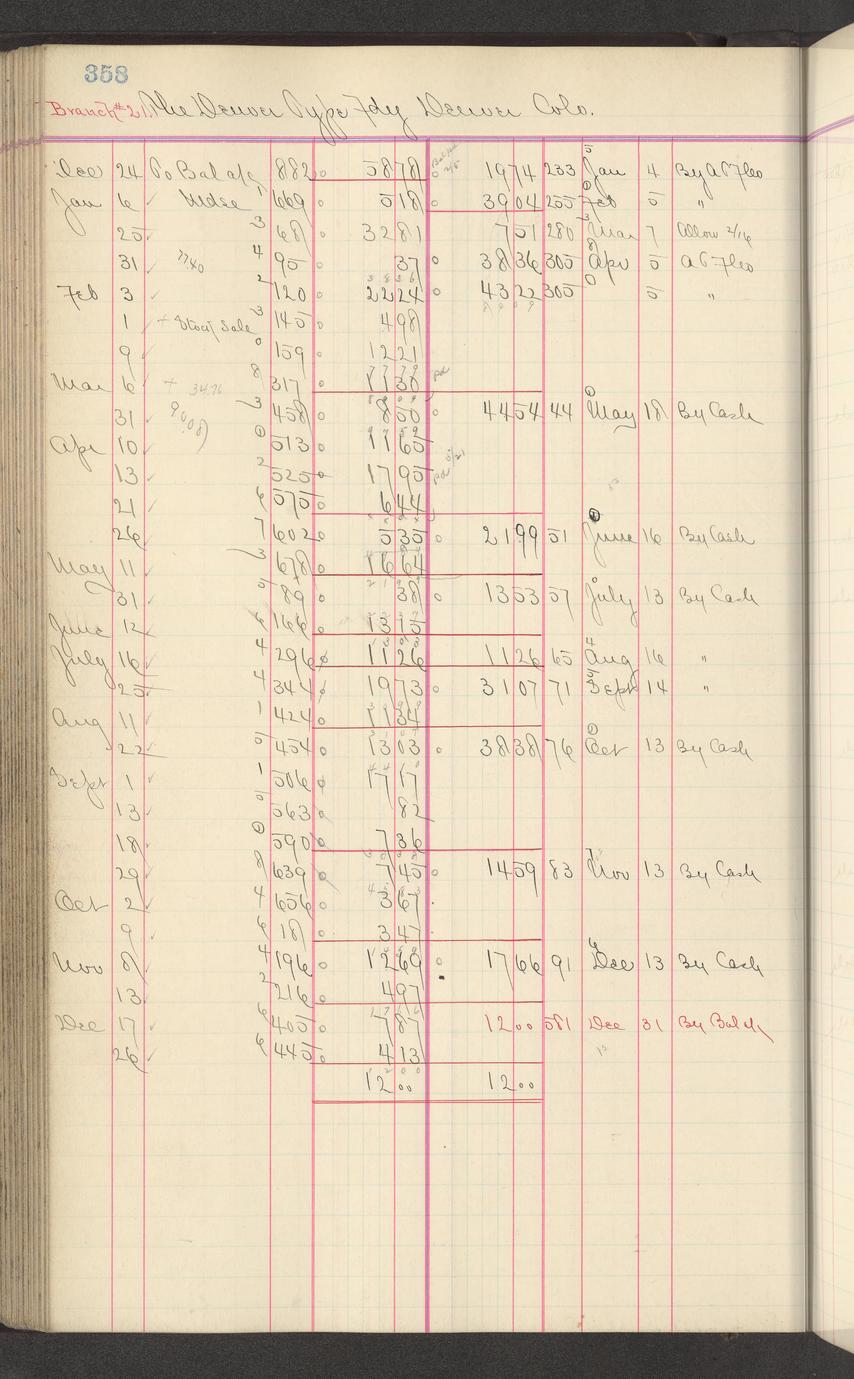 358
Branch #21. The Denver Type Fdy Denver Colo.
Dec 24 To Bal a/c 882 58 78 19 74 233 Jan 4 By
Jan 6 Mdse 1 669 5 18 39 04 255 Feb 5 "
25 3 68 32 81 7 51 280 Mar 7 Allow 2/16
31 4 95 37 38 36 305 Apr 5
Feb 3 2 120 22 24 43 22 305 5 "
1 Stock Sale 3 145 4 98
9 0 159 12 21
Mar 6 + 34.76 8 317 11 30 pd
31 3 458 8 50 44 54 44 May 18 By Cash
Apr 10 513 11 65
13 2 525 17 95 pd 5/21
21 6 575 6 44
26 7 602 5 35 21 99 51 June 16 By Cash
May 11 3 678 16 64
31 5 89 38 13 53 57 July 13 By Cash
June 12 6 166 13 15
July 16 4 296 11 26 11 26 65 Aug 16 "
25 4 344 19 73 31 07 71 Sept 14 "
Aug 11 1 424 11 34
22 5 454 13 03 38 38 76 Oct 13 By Cash
Sept 1 1 506 17 17
13 5 563 82
18 590 7 36
29 8 639 7 45 14 59 83 Nov 13 By Cash
Oct 2 4 656 3 67
9 6 18 3 47
Nov 8 4 196 12 69 17 66 91 Dec 13 By Cash
13 2 216 4 97
Dec 17 6 405 7 87 12 00 581 Dec 31 By Bal
26 6 445 4 13
12 00 12 00